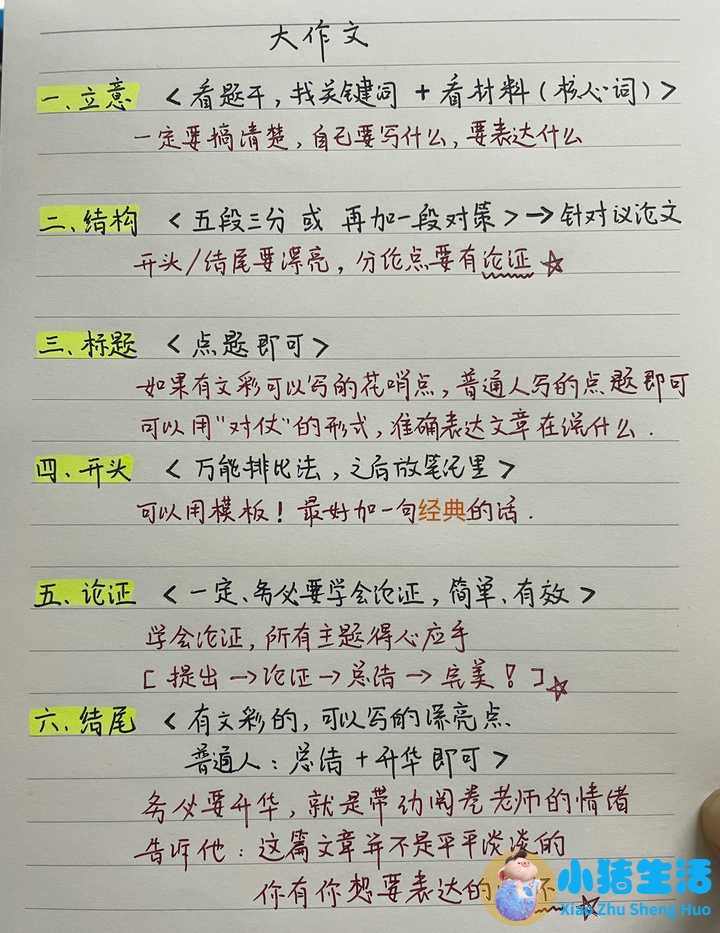 大作文
一、立意 <看题干,找关键词 + 看材料(核心词)>
一定要搞清楚,自己要写什么,要表达什么
二、结构 <五段三分 或 再加一段对策>→针对议论文
开头/结尾要漂亮,分论点要有论证☆
三、标题 <点题即可>
如果有文彩可以写的花哨点,普通人写的点题即可
可以用"对仗"的形式,准确表达文章在说什么.
四、开头 <万能排比法,之后放笔记里>
可以用模板!最好加一句经典的话.
五、论证 <一定、务必要学会论证,简单、有效>
学会论证,所有主题得心应手
[提出→论证→总结→完美!]☆
六、结尾 <有文彩的,可以写的漂亮点、
普通人:总结+升华即可>
务必要升华,就是带动阅卷老师的情绪
告诉他:这篇文章并不是平平淡淡的
你有你想要表达的 怀☆
小猪生活
Xiao Zhu Sheng Huo